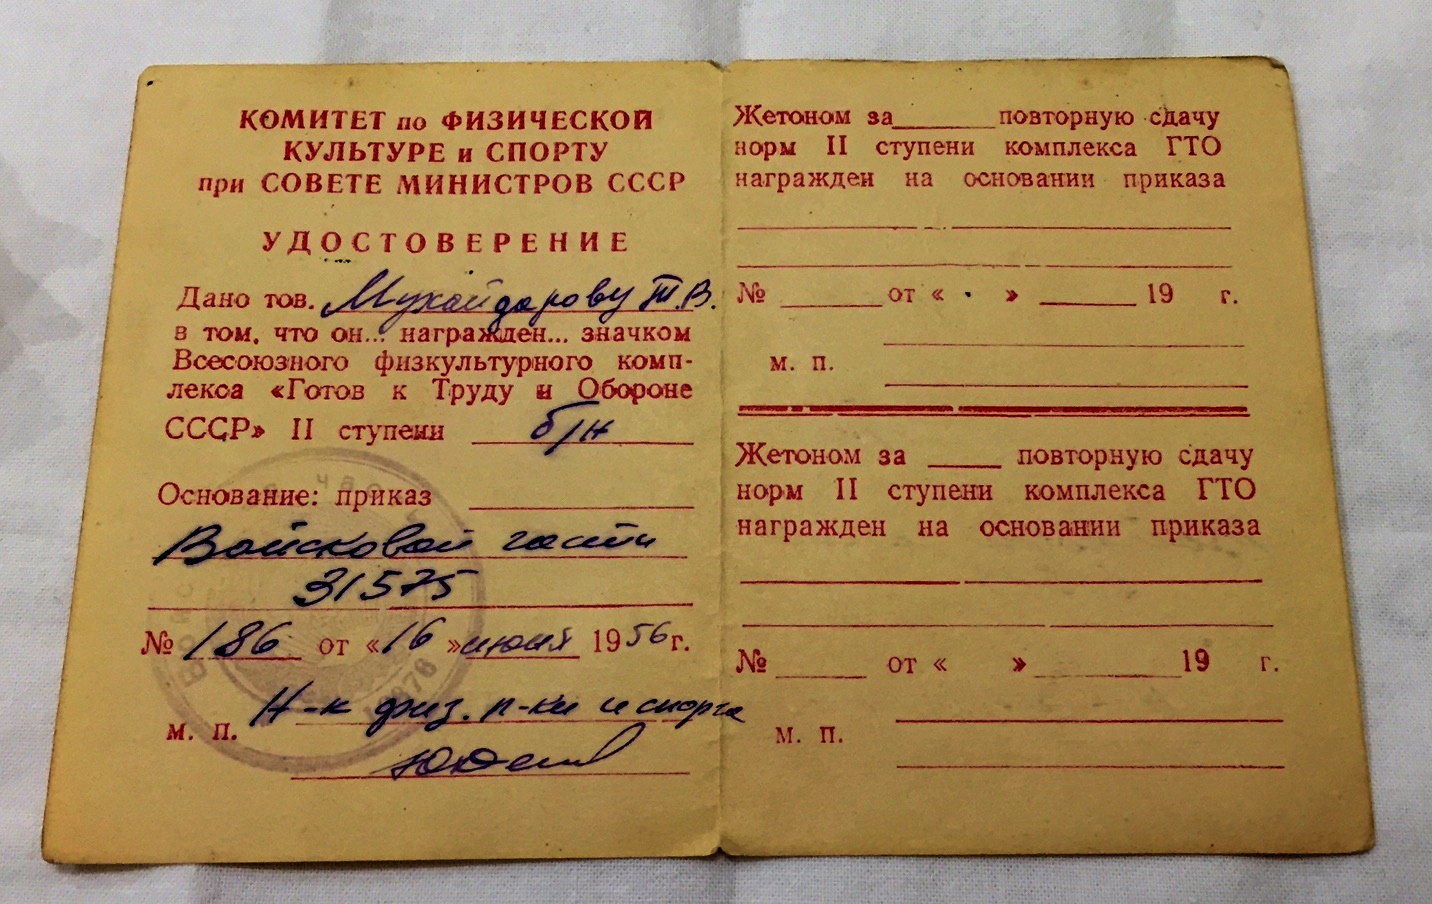 КОМИТЕТ по ФИЗИЧЕСКОЙ
КУЛЬТУРЕ и СПОРТУ
при СОВЕТЕ МИНИСТРОВ СССР
УДОСТОВЕРЕНИЕ
Дано тов. Мухайдарову Т.В.
в том, что он... награжден... значком
Всесоюзного физкультурного комп-
лекса «Готов к Труду и Обороне
СССР» II ступени б/н
Основание: приказ
Войсковой части
31575
№ 186 от «16» июня 1956 г.
Н-к физ. п-ки и спорта
м. п.
Жетоном за повторную сдачу
норм II ступени комплекса ГТО
награжден на основании приказа
№ от « » 19 г.
м. п.
Жетоном за повторную сдачу
норм II ступени комплекса ГТО
награжден на основании приказа
№ от « » 19 г.
м. п.